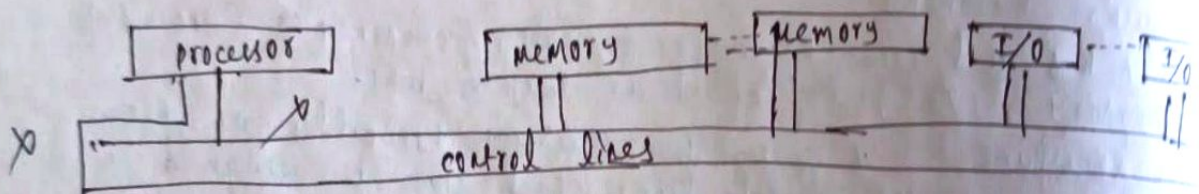 processor memory memory I/O I/O
control lines